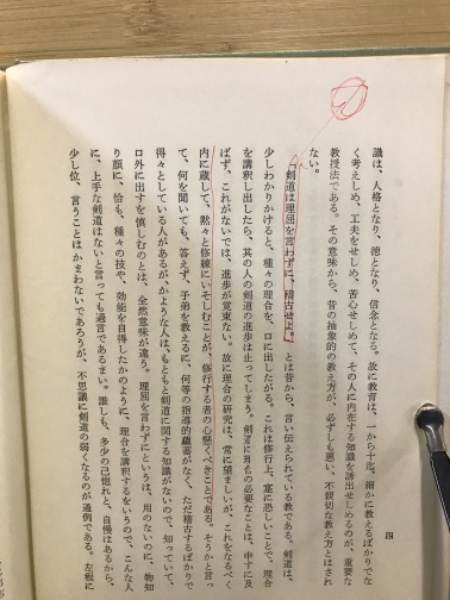 四
識は、人格となり、徳となり、信念となる。故に教育は、一から十迄、細かに教えるばかりでな
く考えしめ、工夫をせしめ、苦心せしめて、その人に内在する知識を誘出せしめるのが、重要な
教授法である。その意味から、昔の抽象的の教え方が、必ずしも悪い、不親切な教え方とはされ
ない。
「剣道は理屈を言わずに、稽古せよ。」とは昔から、言い伝えられている教である。剣道は、
少しわかりかけると、種々の理合を、口に出したがる。これは修行上、寔に恐しいことで、理合
を講釈し出したら、其の人の剣道の進歩は止ってしまう。剣道に理合の必要なことは、申すに及
ばず、これがないでは、進歩が覚束ない。故に理合の研究は、常に望ましいが、これをなるべく
内に蔵して、黙々と修練にいそしむことが、修行する者の心懸くべきことである。そうかと言っ
て、何を聞いても、答えず、子弟を教えるに、何等の指導的蘊蓄がなく、ただ稽古するばかりで
得々としている人があるが、かような人は、もともと剣道に関する知識がないので、知っていて、
口外に出すを慎しむのとは、全然意味が違う。理屈を言わずにというは、用のないのに、物知
り顔に、恰も、種々の技や、効能を自得したかのように、理合を講釈するをいうので、こんな人
に、上手な剣道はないと言っても過言であるまい。誰しも、多少の己惚れと、自慢はあるから、
少し位、言うことは かまわないであろうが、不思議に剣道の弱くなるのが通例である。左程に